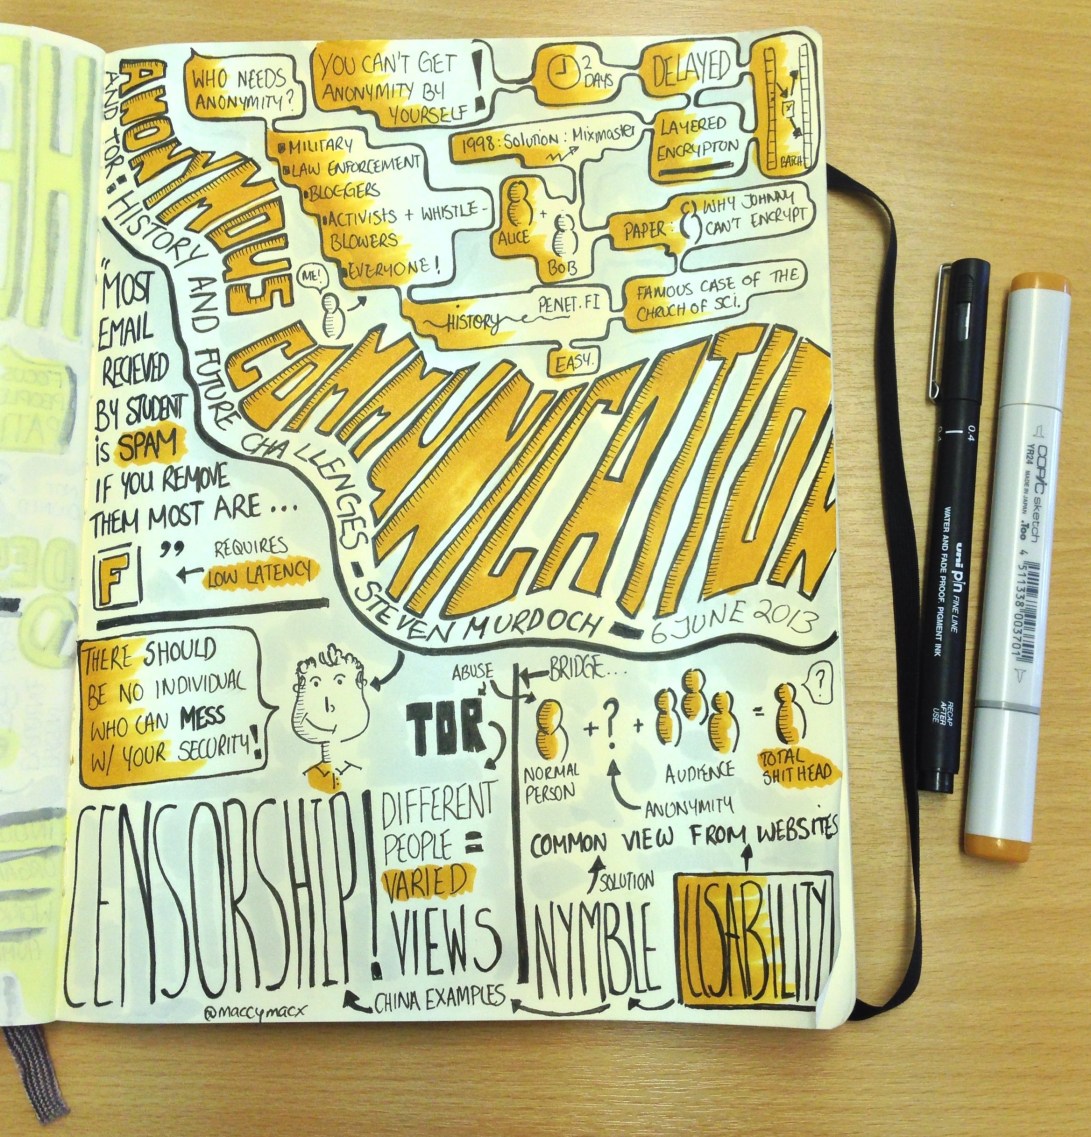 ANONYMOUS
COMMUNICATION
AND TOR: HISTORY AND FUTURE CHALLENGES - STEVEN MURDOCH - 6 JUNE 2013
WHO NEEDS
ANONYMITY?
YOU CAN'T GET
ANONYMITY BY
YOURSELF!
2
DAYS
DELAYED
BATCH
LAYERED
ENCRYPTON
1998: Solution: Mixmaster
• MILITARY
• LAW ENFORCEMENT
• BLOGGERS
• ACTIVISTS + WHISTLE-
BLOWERS
• EVERYONE!
ME!
ALICE
+
BOB
PAPER:
WHY JOHNNY
CAN'T ENCRYPT
FAMOUS CASE OF THE
CHRUCH OF SCI.
HISTORY
PENET.FI
EASY.
"MOST
EMAIL
RECIEVED
BY STUDENT
is SPAM
IF YOU REMOVE
THEM MOST ARE ...
F "
REQUIRES
LOW LATENCY
THERE SHOULD
BE NO INDIVIDUAL
WHO CAN MESS
W/ YOUR SECURITY!
ABUSE
TOR
BRIDGE...
+ ? + = ?
NORMAL
PERSON
AUDIENCE
TOTAL
SHITHEAD
ANONYMITY
COMMON VIEW FROM WEBSITES
SOLUTION
NYMBLE
USABILITY
DIFFERENT
PEOPLE =
VARIED
VIEWS
CENSORSHIP!
CHINA EXAMPLES
@maccymacx
0.4
0.4
uni pin FINE LINE
WATER AND FADE PROOF, PIGMENT INK
RECAP
AFTER
USE
COPIC sketch
YR24 MADE IN JAPAN .Too
4 511338 003701